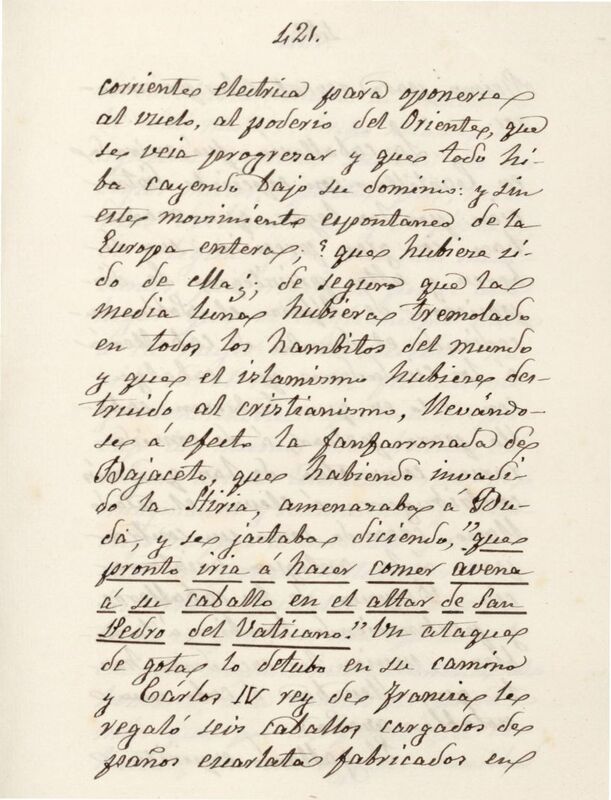 421.
corriente electrica para oponerse
al vuelo, al poderio del Oriente, que
se veia progresar y que todo hi-
ba cayendo bajo su dominio: y sin
este movimiento espontaneo de la
Europa entera; ? que hubiere si-
do de ella¿; de seguro que la
media luna hubiera tremolado
en todos los hambitos del mundo
y que el islamismo hubiere des-
truido al cristianismo, llevándo-
se á efecto la fanfarronada de
Bajaceto, que habiendo invadi-
do la Stiria, amenazaba á Bu-
da, y se jactaba diciendo, "que
pronto iria á hacer comer avena
á su caballo en el altar de San
Pedro del Vaticano." Un ataque
de gota lo detubo en su camino
y Cárlos IV rey de Francia le
regaló seis caballos cargados de
paños escarlata fabricados en